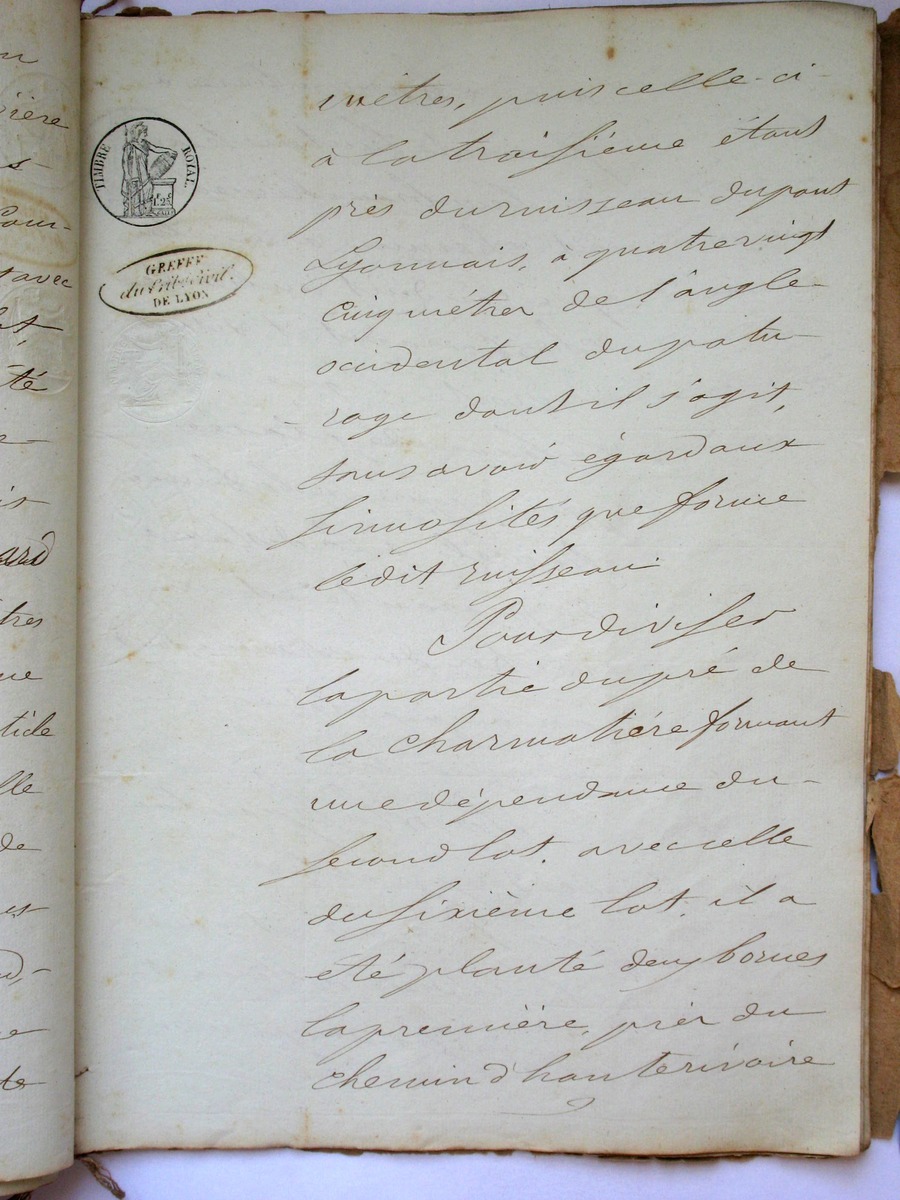 n
ière
s
Cour-
avec
et,
té
e
is
ard
tres
ue
ticle
lle
de
es
d,-
e
te
TIMBRE ROYAL
GREFFE
du Trib. Civil.
DE LYON
mètres, puis celle-ci
à la troisième étant
près du ruisseau du pont
Lyonnais, à quatre vingt
cinq métres de l'angle
occidental du patu-
rage dont il s'agit,
sans avoir égard aux
sinuosités que forme
ledit ruisseau.
Pour diviser
la partie du pré de
la charmatiére formant
une dépendance du
second lot, avec celle
du sixième lot, il a
été planté deux bornes
la première, près du
chemin d'hauterivoire